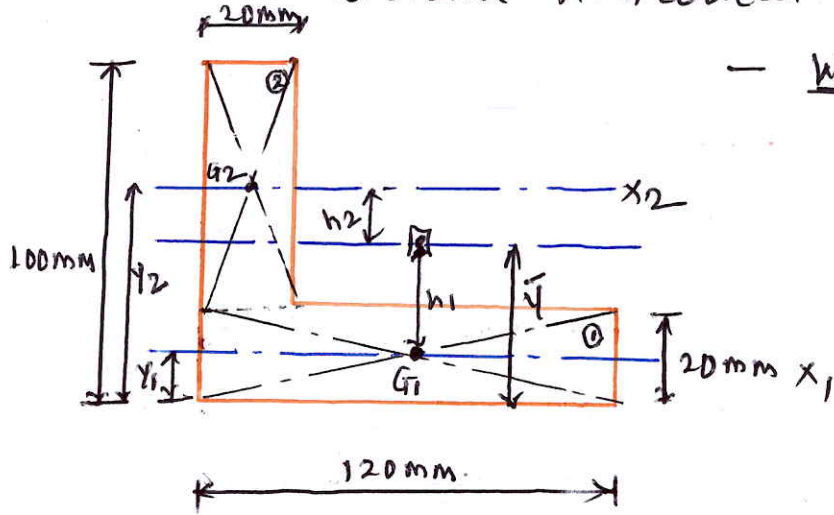 20mm
②
— W
G2
X2
h2
100mm
Y2
h1
ȳ
①
Y1
G1
20mm X1
120mm.